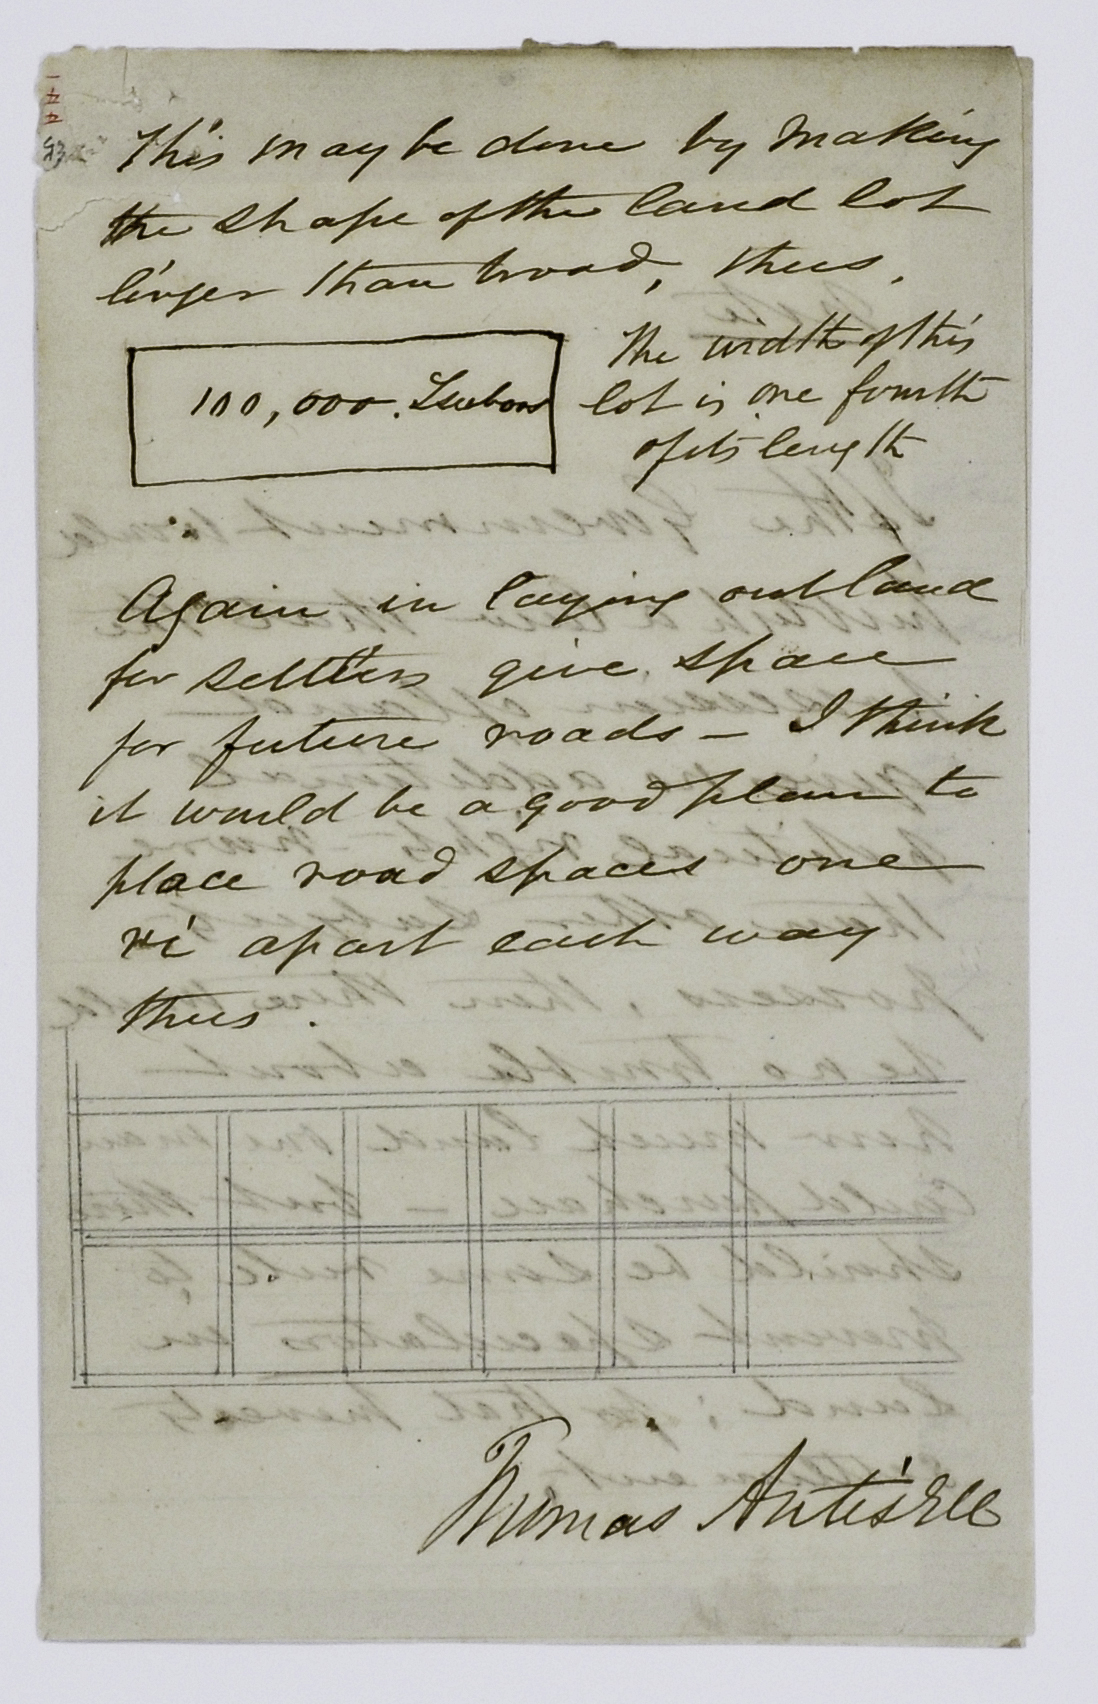 This may be done by making
the shape of the land lot
longer than broad, thus,
100,000. Tsubos
The width of this
lot is one fourth
of its length
Again in laying out land
for settlers give space
for future roads — I think
it would be a good plan to
place road spaces one
ri apart each way
thus.
Thomas Antisell